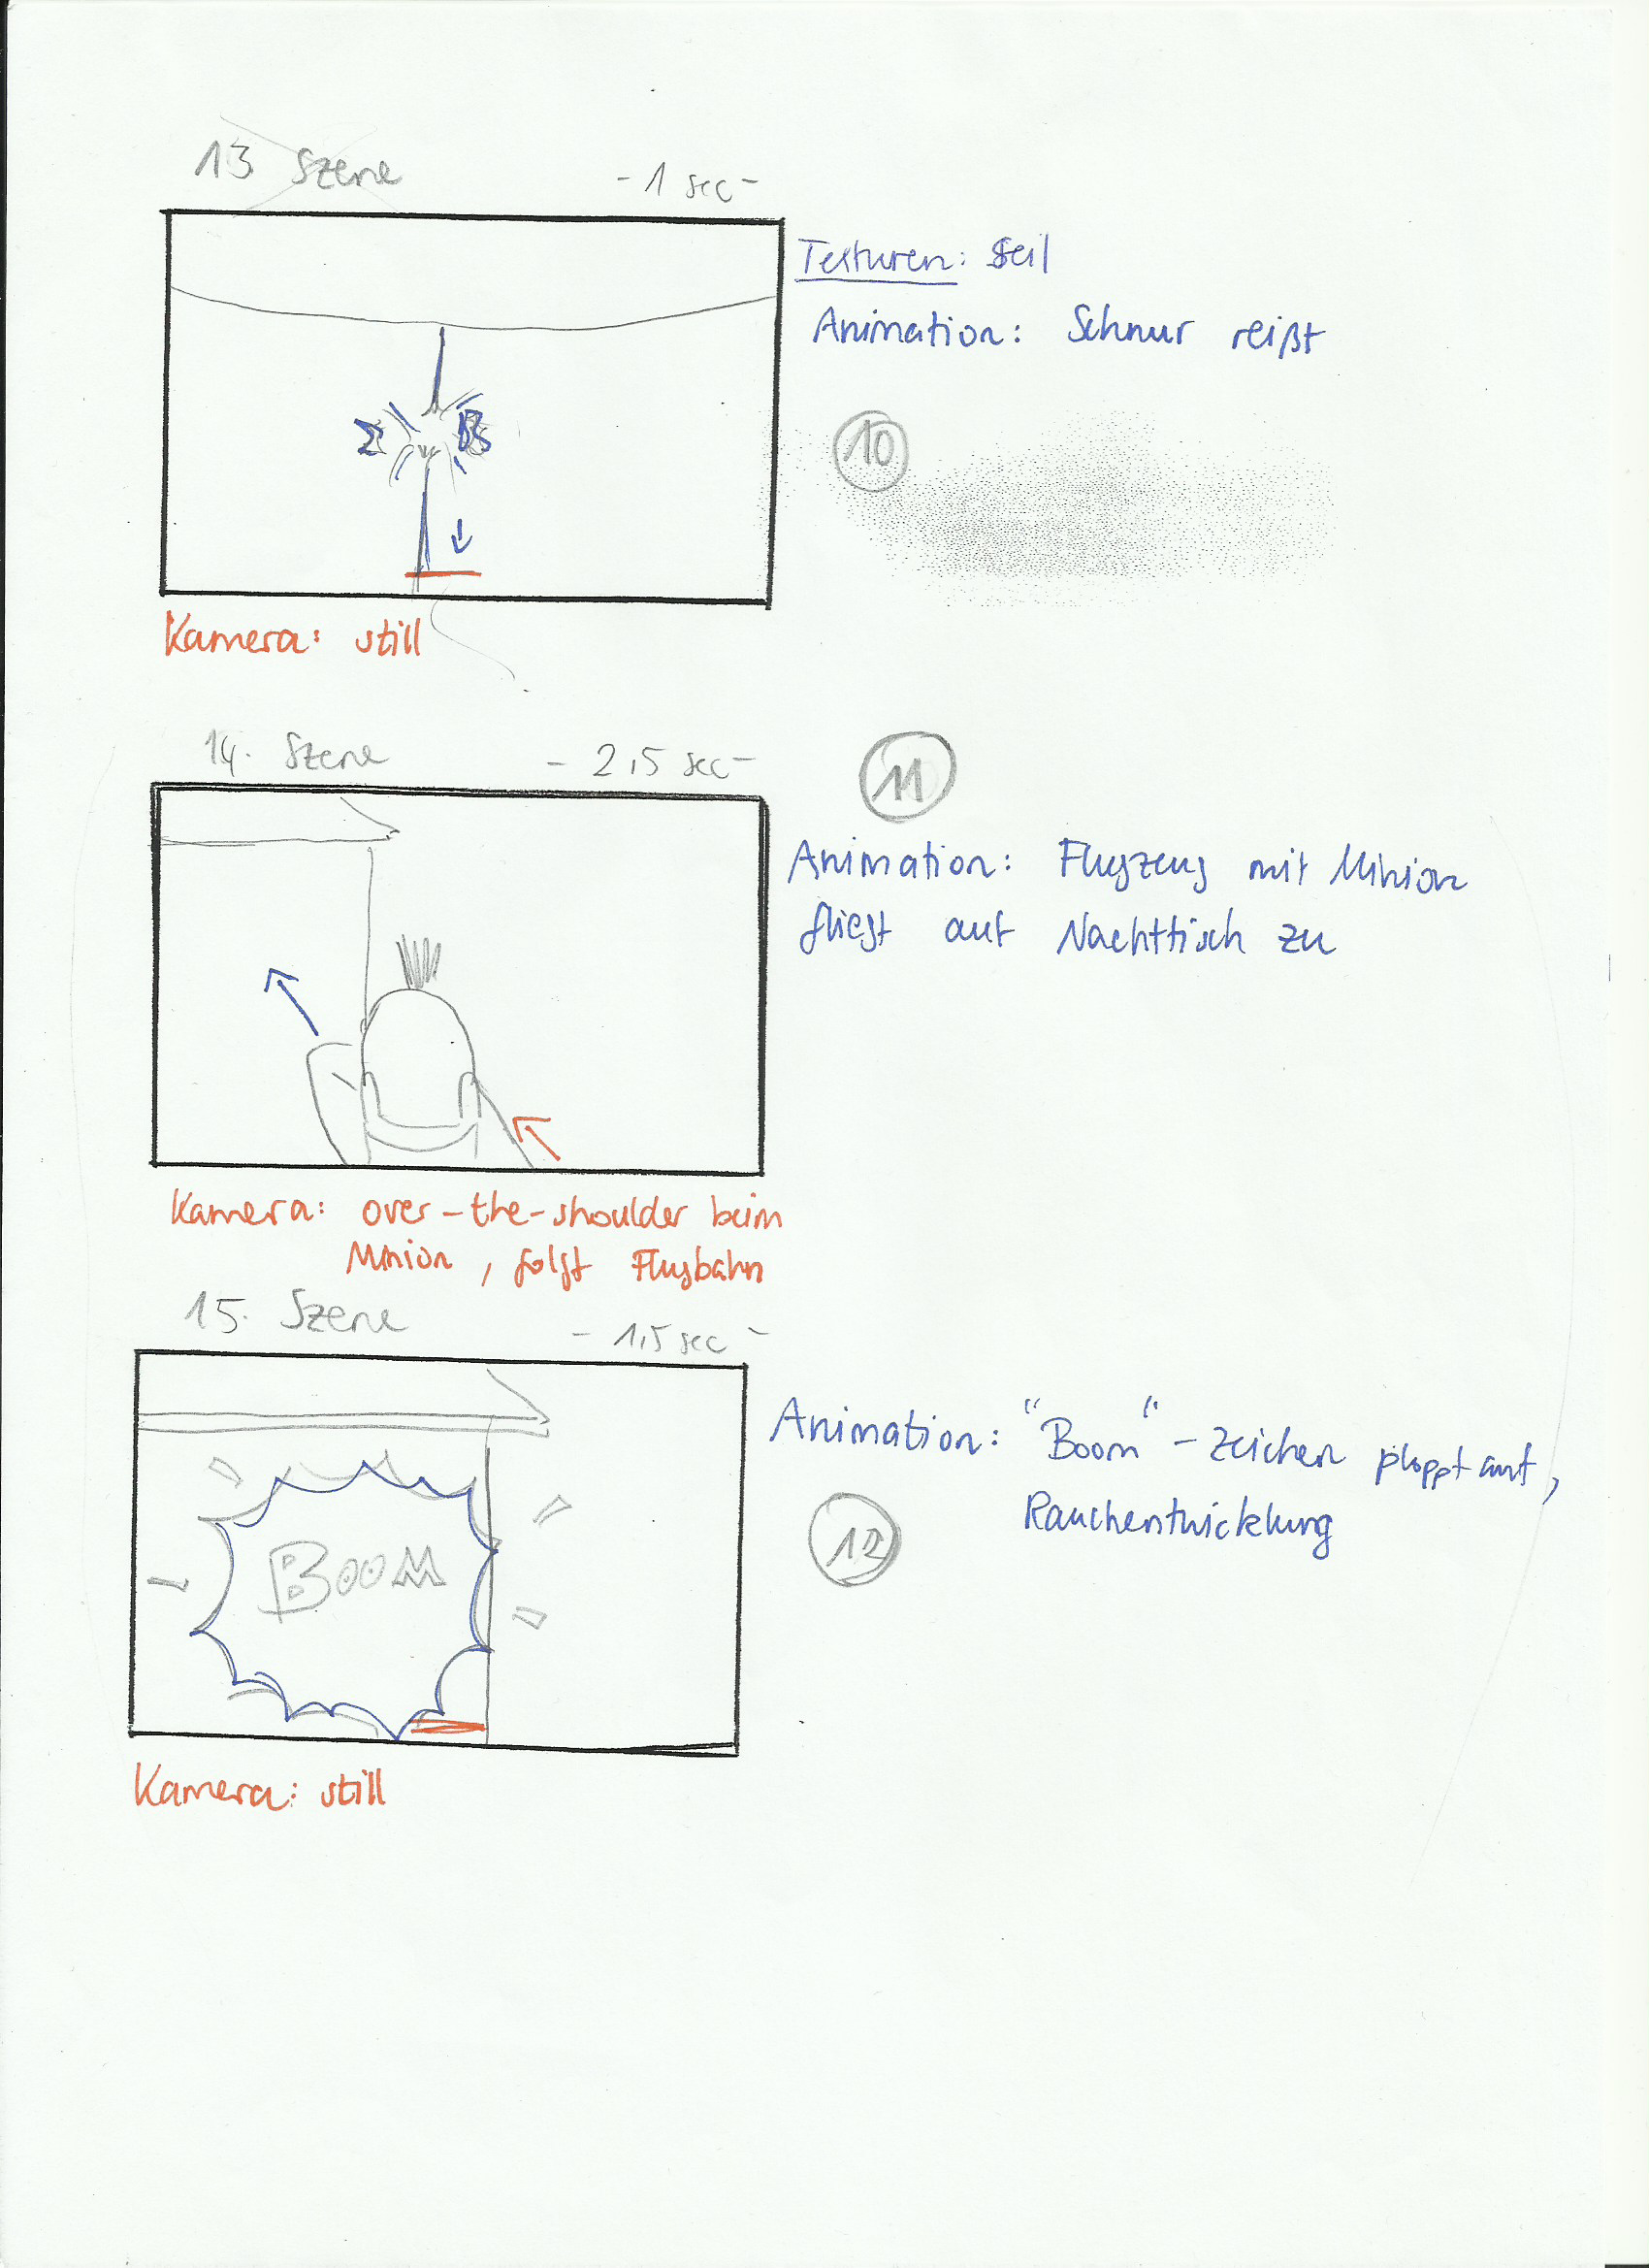 13 Szene
- 1 sec -
Texturen: Seil
Animation: Schnur reißt
10
Kamera: still
14. Szene
- 2,5 sec -
11
Animation: Flugzeug mit Minion
fliegt auf Nachttisch zu
Kamera: over-the-shoulder beim
Minion, folgt Flugbahn
15. Szene
- 1,5 sec -
Animation: "Boom"-Zeichen ploppt auf,
Rauchentwicklung
BOOM
12
Kamera: still